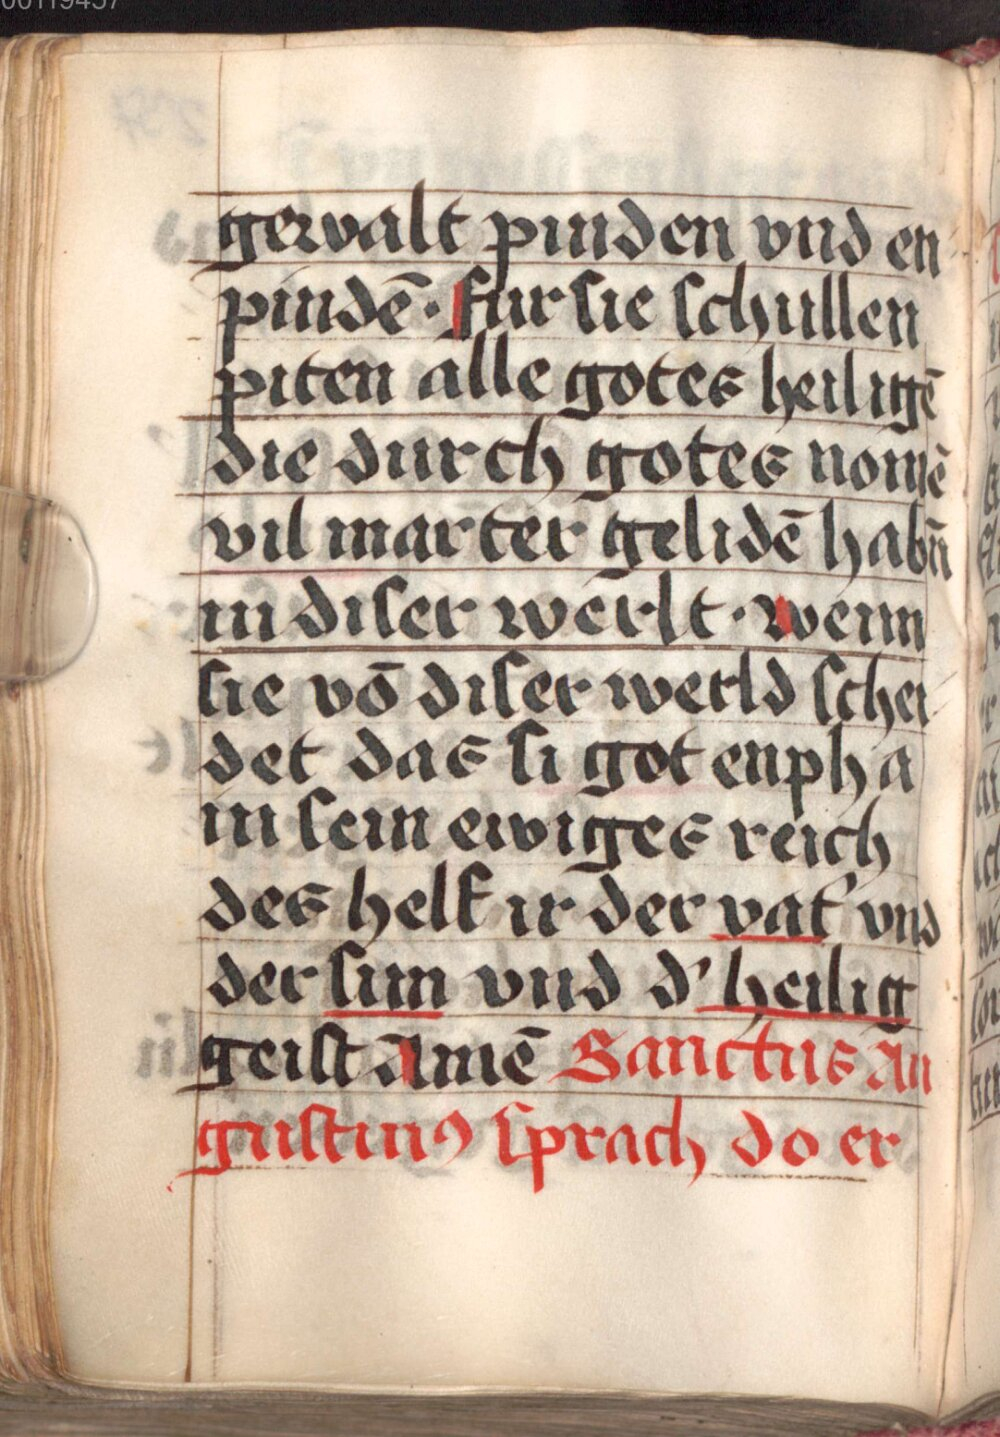 00119457
gewalt pinden vnd en
pindē · fur sie schullen
piten alle gotes heiligē
die durch gotes nomē
vil marter gelidē habn̄
in diser werlt · wenn
sie vō diser werld schei
det das si got enpha
in sein ewiges reich
des helf ir der vat' vnd
der sun vnd d' heilig
geist Amē Sanctus Au
gustinꝰ sprach do er